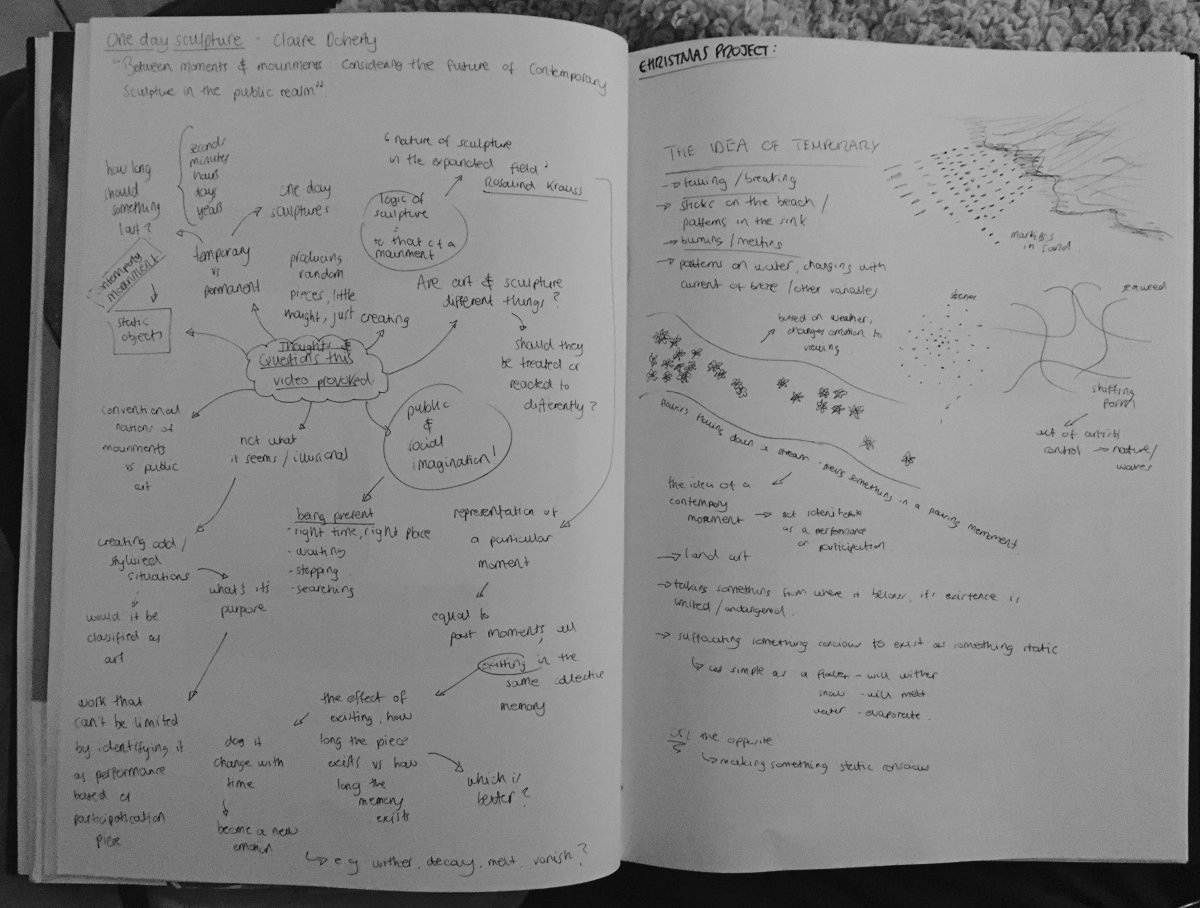 One day sculpture - Claire Doherty
"Between moments & mounments: Considering the future of Contemporary
Sculpture in the public realm"
how long
should
something
last?
seconds
minutes
hours
days
years
one day
sculptures
temporary
vs
permanent
contempory
mounment
static
objects
producing
random
pieces, little
thought, just creating
"nature of sculpture
in the expanded field"
Rosalund Krauss
logic of
sculpture
=
to that of a
mounment
Are art & sculpture
different things?
should they
be treated or
reacted to
differently?
Thoughts &
Questions this
video provoked.
conventional
nations of
mounments
vs public
art
not what
it seems/illusional
public
&
social
imagination!
being present
- right time, right place
- waiting
- stopping
- searching
creating odd/
stylised
situations
what's it's
purpose
would it be
classified as
art
work that
can't be limited
by identifying it
as performance
based or
participatication
piece
representation of
a particular
moment
equal to
past moments all
existing in the
same collective
memory
the effect of
existing, how
long the piece
exists vs how
long the
memory
exists
which is
better?
does it
change with
time
become a new
emotion
e.g wither, decay, melt, vanish?
CHRISTMAS PROJECT:
THE IDEA OF TEMPORARY
→ falling/breaking
→ sticks on the beach/
patterns in the sink
→ burning/melting
→ patterns on water, changing with
current of breze/other variables
based on weather,
changes emotion to
viewing
marks
in sand
stones
seaweed
shifting
form
out of artists
control → nature/
waves
down a stream - being something in a passing memoment
the idea of a
contempory
monment → not identifiable
as a performance
or participation.
→ land art
→ taking something from where it belows, it's existence is
limited/endangered.
→ suffocating something consious to exist as something static
↳ as simple as a flower - will wither
snow - will melt
water - evaporate.
the opposite
↳ making something static consious